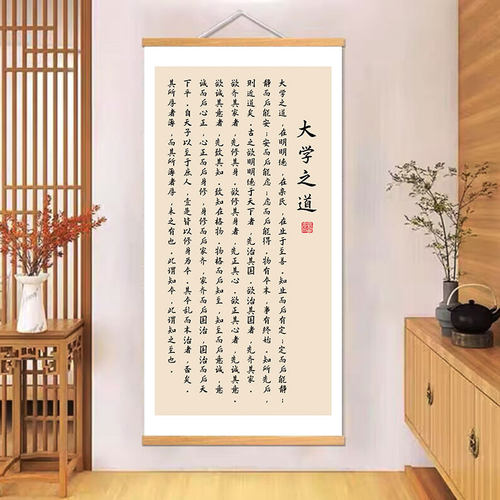 大学之道
大学之道，在明明德，在亲民，在止于至善，知止而后有定；定而后能静；
静而后能安；安而后能虑；虑而后能得，物有本末，事有终始，知所先后，
则近道矣，古之欲明明德于天下者，先治其国，欲治其国者，先齐其家，
欲齐其家者，先修其身，欲修其身者，先正其心，欲正其心者，先诚其意，
欲诚其意者，先致其知，致知在格物，物格而后知至，知至而后意诚，意
诚而后心正，心正而后身修，身修而后家齐，家齐而后国治，国治而后天
下平，自天子以至于庶人，壹是皆以修身为本，其本乱而末治者，否矣，
其所厚者薄，而其所薄者厚，未之有也，此谓知本，此谓知之至也．